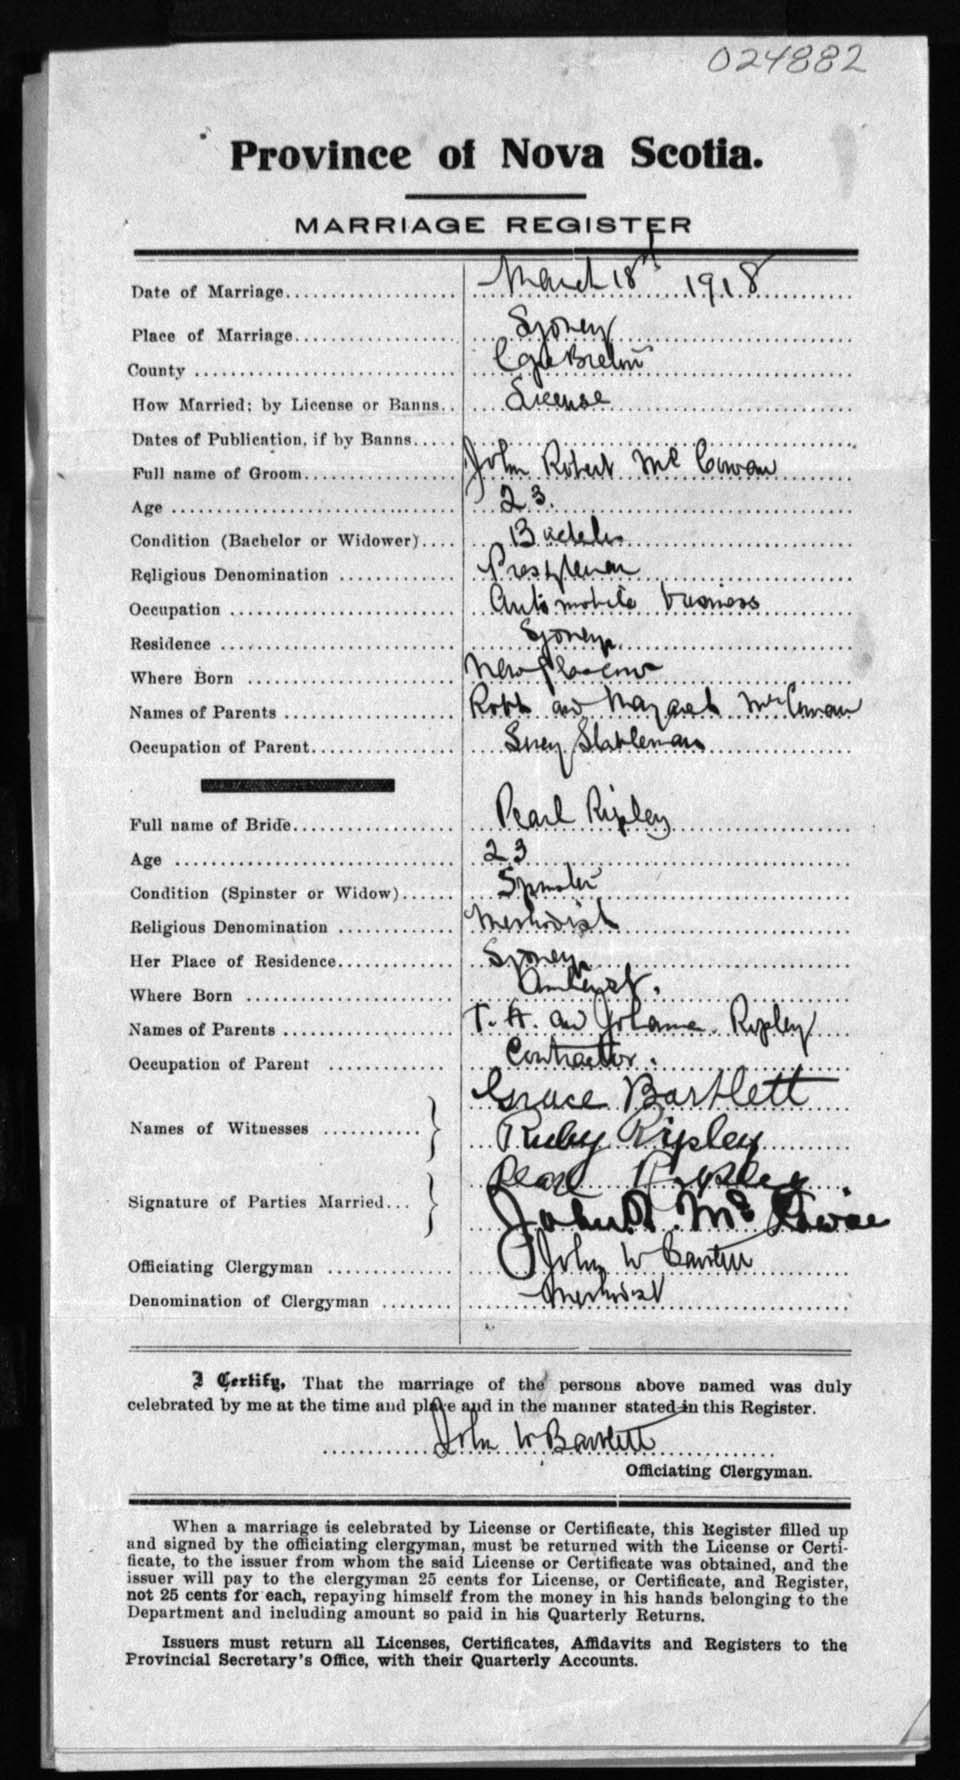 024882
Province of Nova Scotia.
MARRIAGE REGISTER
Date of Marriage March 18th 1918
Place of Marriage Sydney
County Cape Breton
How Married; by License or Banns License
Dates of Publication, if by Banns
Full name of Groom John Robert McCowan
Age 23.
Condition (Bachelor or Widower) Bachelor
Religious Denomination Presbyterian
Occupation Automobile business
Residence Sydney
Where Born New Glasgow
Names of Parents Robt and Margaret McCowan
Occupation of Parent Stableman
Full name of Bride Pearl Ripley
Age 23
Condition (Spinster or Widow) Spinster
Religious Denomination Methodist
Her Place of Residence Sydney
Where Born Amherst.
Names of Parents T. A. and Johanna Ripley
Occupation of Parent Contractor.
Grace Bartlett
Names of Witnesses
Ruby Ripley
Pearl Ripley
Signature of Parties Married
John R. McCowan
Officiating Clergyman John W Bartlett
Denomination of Clergyman Methodist
I Certify, That the marriage of the persons above named was duly
celebrated by me at the time and place and in the manner stated in this Register.
John W Bartlett
Officiating Clergyman.
When a marriage is celebrated by License or Certificate, this Register filled up
and signed by the officiating clergyman, must be returned with the License or Certi-
ficate, to the issuer from whom the said License or Certificate was obtained, and the
issuer will pay to the clergyman 25 cents for License, or Certificate, and Register,
not 25 cents for each, repaying himself from the money in his hands belonging to the
Department and including amount so paid in his Quarterly Returns.
Issuers must return all Licenses, Certificates, Affidavits and Registers to the
Provincial Secretary's Office, with their Quarterly Accounts.